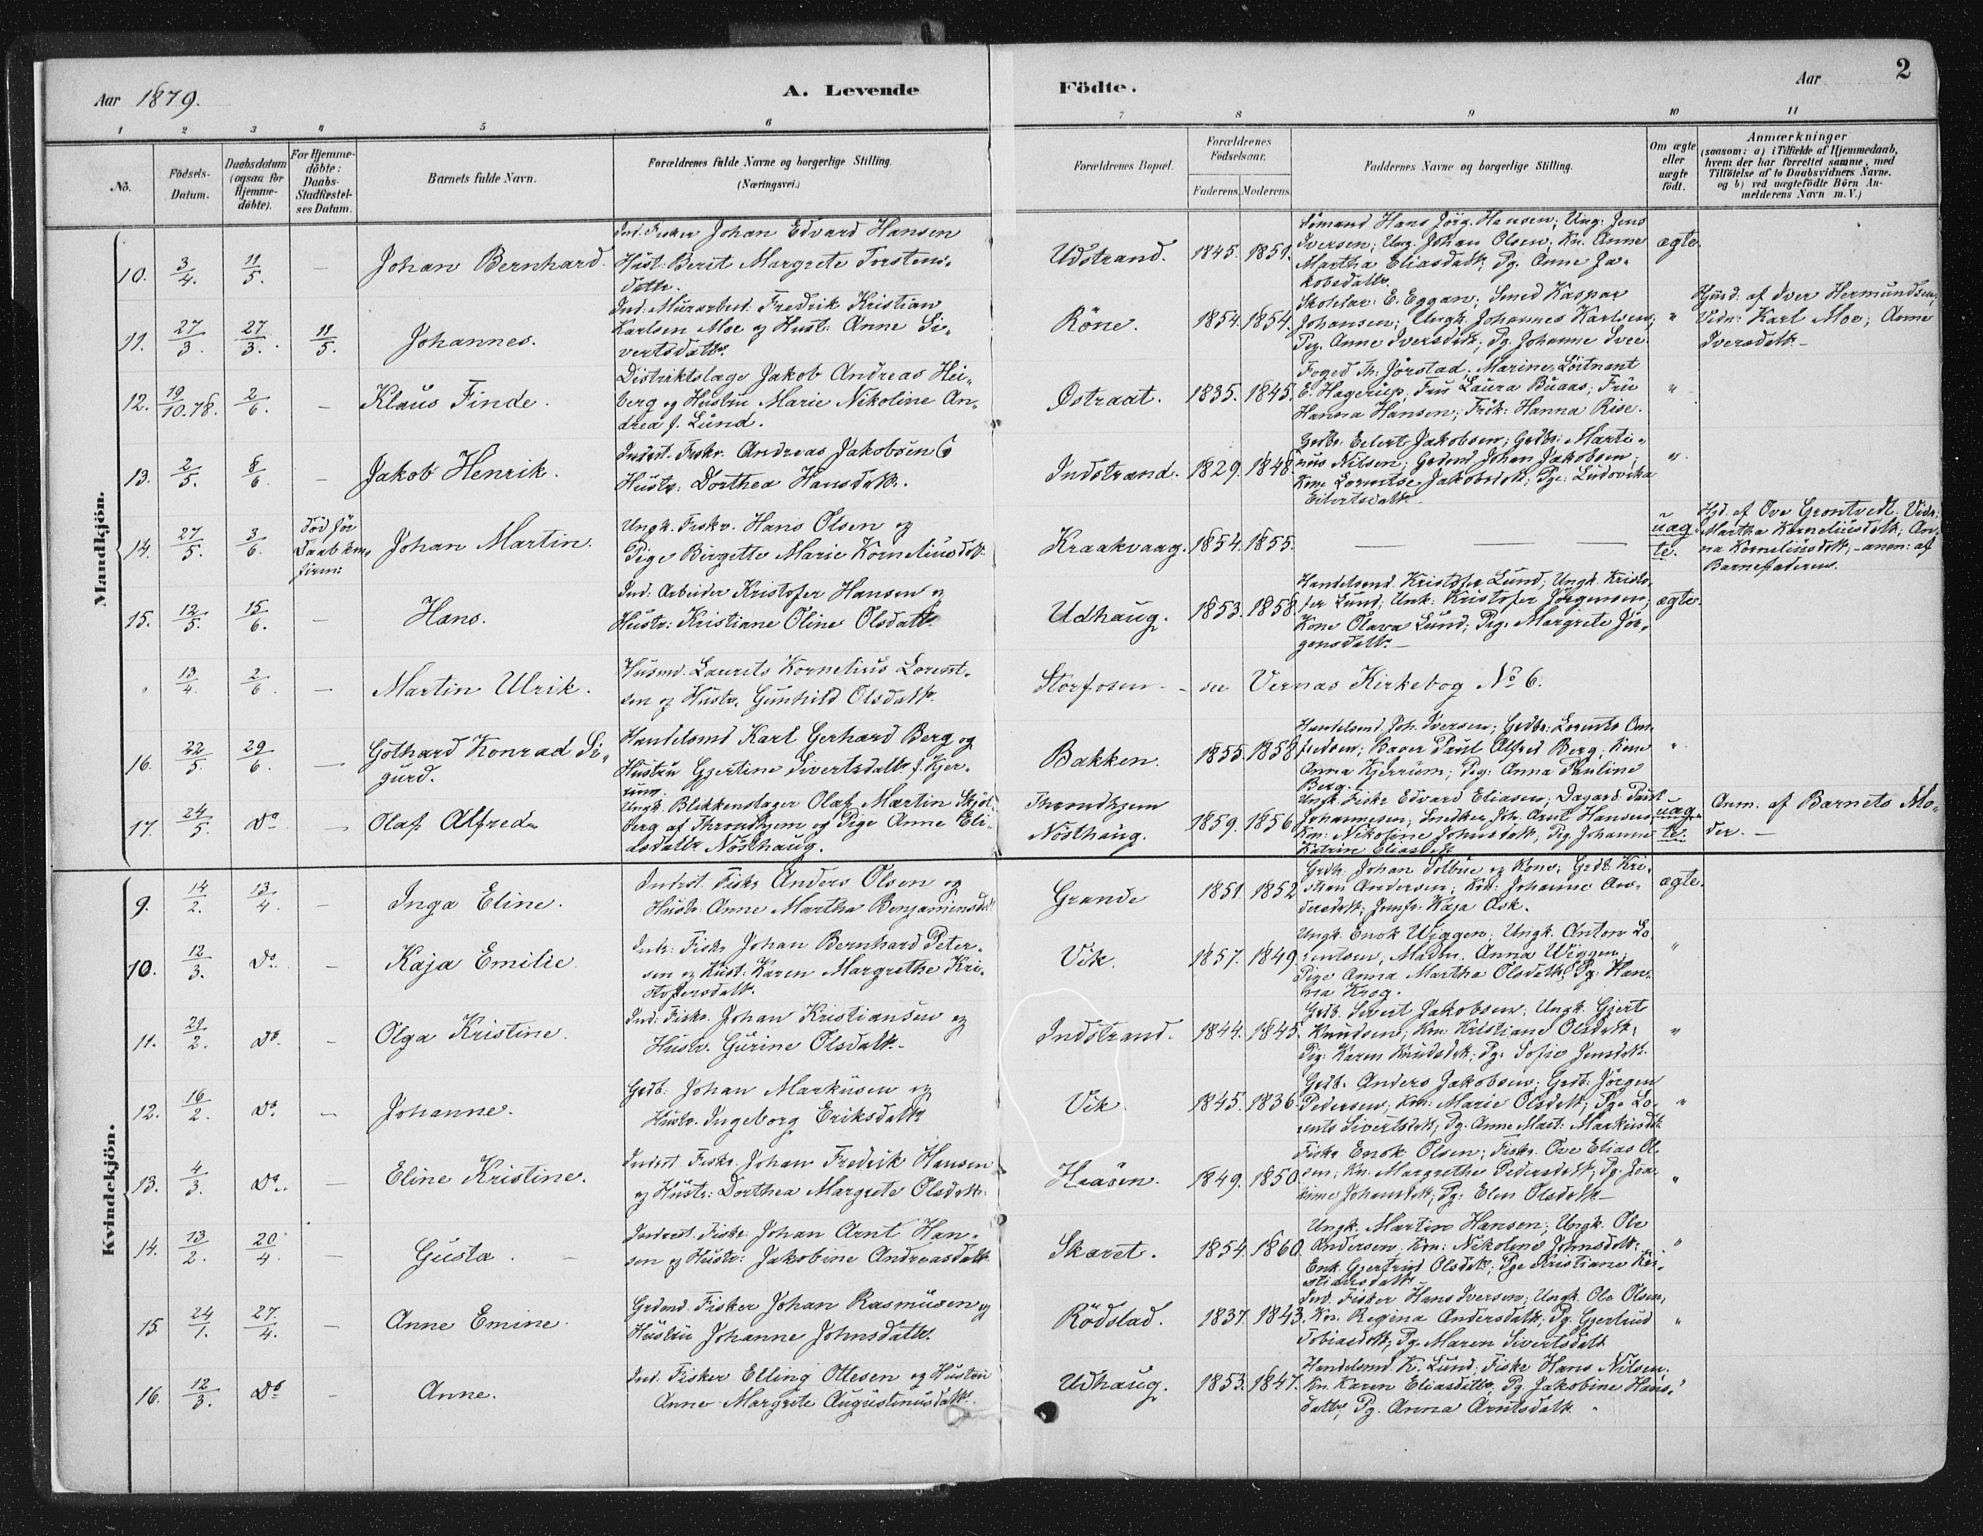 Aar 1879.
A. Levende
Födte.
Aar
2
1 2 3 4 5 6 7 8 9 10 11
No.
Födsels-
Datum.
Daabsdatum
(ogsaa for
Hjemme-
döbte).
For Hjemme-
döbte:
Daabs-
Stadfæstel-
ses Datum.
Barnets fulde Navn.
Forældrenes fulde Navne og borgerlige Stilling.
(Næringsvei.)
Forældrenes Bopæl.
Forældrenes
Födselsaar.
Faderens. Moderens.
Faddernes Navne og borgerlige Stilling.
Om ægte
eller
uægte
födt.
Anmærkninger
(saasom: a) i Tilfælde af Hjemmedaab,
hvem der har forrettet samme, med
Tilföielse af to Daabsvidners Navne.
og b) ved uægtefödte Börn An-
melderens Navn m.V.)
Mandkjön.
10. 3/4. 11/5. – Johan Bernhard.
Ind. Fisker Johan Edvard Hansen
Hust. Berit Margrete Torstens-
datte.
Udstrand. 1845. 1851.
Sömand Hans Jörg. Hansen; Ung. Jens
Iversen; Ung. Johan Olsen; Kn. Anne
Martha Eliasdatt; Pg. Anne Ja-
kobsdatt.
ægte.
11. 27/3. 27/3. 11/5. Johannes.
Ind. Murarbeid. Fredrik Kristian
Karlsen Moe og Hustr. Anne Si-
vertsdatt.
Röne. 1854. 1854.
Skolelær. E. Eggan; Smed Kaspar
Johansen; Ungk. Johannes Karlsen;
Pig. Anne Iversdatt; Pg. Johanne Iver
"
Hjmd. af Iver Hermundsen,
Vidn: Karl Moe; Anne
Iversdatt.–
12. 19/10.78. 2/6. – Klaus Finde.
Distriktslæge Jakob Andreas Hei-
berg og Hustru Marie Nikoline An-
drea f. Lund.
Østraat. 1835. 1845.
Foged Th. Jörstad, Marine Löitnant
E. Hagerup; Fru Laura Buaas; Fru
Hanna Hansen; Frk. Hanna Rise.
"
13. 2/5. 8/6. – Jakob Henrik.
Inderst. Fiskr. Andreas Jakobsen &
Hustr: Dorthea Hansdatt.
Indstrand. 1829. 1848.
Grdbr. Eilert Jakobsen; Grdbr. Marti-
nus Nilsen; Grdmd Johan Jakobsen;
Kone Jakobsdatt; Pge: Ludovika
Eilertsdatt
"
14. 27/5. 3/6. Död för
Daab
Johan Martin.
Ungk. Fiskr. Hans Olsen og
Pige Birgette Marie Korneliusdatt
Kraakvaag. 1854. 1855. — —
uæg
te.
Hjd. af Ove Grontvedt. Vidn:
Martha Korneliusdatt; An-
na Korneliusdatt; – anm: af
Barnefaderen.
15. 12/5. 15/6. – Hans.
Ind: Arbeider Kristofer Hansen og
Hustr: Kristiane Oline Olsdatt.
Udhaug. 1853. 1858.
Handelsmd. Kristofer Lund; Ungk. Kristo-
fer Lund; Unk: Kristofer Jörgensen;
Kone Olava Lund; Pig. Margrete Jör-
gensdatt.–
ægte.
" 13/4. 2/6. – Martin Ulrik.
Husmd. Laurits Kornelius Lorent-
sen og Hustr. Gunhild Olsdatt.
Storfosen. – see Vernæs Kirkebog No 6.
16. 22/5. 29/6. – Gothard Konrad Si-
gurd.
Handelsmd Karl Gerhard Berg og
Hustru Gjertine Sivertsdatt f. Kjer-
ring.
Bakken. 1855. 1858
Handelsmd Joh. Iversen; Grdbr. Lorents
Paul Alfred Berg; Kone
Anna Kjerrüm; Pig: Anna Pauline
Berg.
"
17. 24/5. Do. – Olaf Alfred.
Ungk. Blikkenslager Olaf Martin Skjöl-
berg af Throndhjem og Pige Anne Eli-
asdatt Nösthaug.
Throndhjem
Nösthaug. 1859. 1856.
Ungk. Fiskr Edvard Eliasen; Dagard. Paul
Johannesen; Joh. Arnt Hansen;
Kn: Nikoline Johnsdatt; Pig. Johanne
Katrine Eliasdatt
uæg-
te.
Anm. af Barnets Mo-
der. –
Kvindekjön.
9. 14/2. 13/4. – Inga Eline.
Inderst. Fiskr Anders Olsen og
Hustr. Anne Martha Benjaminsdatt
Grande 1851 1852
Grdb. Johan Solbue og Kone; Grdb. Kri-
stian Andersen; Kn: Johanne An-
dersdatt; Jomfr. Kaja Ask.
ægte.
10. 12/3. Do. – Kaja Emilie
Indr: Fiskr Johan Bernhard Peter-
sen og Hust: Karen Margrethe Kri-
stoffersdatt.
Vik. 1857. 1849.
Ungk. Enok Wiggen; Ungk. Anton Lo-
rentsen; Madm. Anna Wiggen;
Pige Anna Martha Olsdatt; Pg. Han-
na Krog.
"
11. 21/2. Do. – Olga Kristine.
Ind. Fiskr. Johan Kristiansen og
Hustr. Gurine Olsdatt.
Indstrand. 1844. 1845.
Grdb. Sivert Jakobsen; Ungk. Gjert
Knudsen; Kn: Kristiane Olsdatt;
Pig: Karen Knudsdatt; Pg. Sofie Jensdatt.
"
12. 16/2. Do. – Johanne.
Grdb: Johan Markusen og
Hustr. Ingeborg Eriksdatt
Vik. 1845. 1836.
Grdb. Anders Jakobsen; Grdb: Jörgen
Pedersen; Kn: Marie Olsdatt; Pge. Lo-
rents Sivertsdatt; Pg. Anne Mart: Markusdt.
"
13. 4/3. Do. – Eline Kristine.
Inderst Fiskr. Johan Fredrik Hansen
og Hustr: Dorthea Margrete Olsdatt.
Haasen. 1849. 1850.
Fiskr Enok Olsen; Fiskr. Ove Elias Ol-
sen; Kn. Margrethe Pedersdatt; Pg. Joa-
kime Johansdatt; Pg: Elen Olsdatt.–
"
14. 13/2. 20/4. – Gusta.
Inderst. Fiskr. Johan Arnt Han-
sen og Hustr: Jakobine Andreasdatt
Skaret. 1854. 1860.
Ungk. Martin Hansen; Ungk. Ole
Andersen; Kn: Nikoline Johnsdatt;
Enk. Gjertrud Olsdatt; Pge Kristiane Kri-
stiansdatt.
"
15. 24/1. 27/4. – Anne Emine.
Grdmd. Fisker Johan Rasmusen og
Hustru Johanne Johnsdatt.
Rödstad. 1837. 1843.
Ind. Fisker Hans Iversen; Ungk. Ole Olsen;
Kn. Regina Andersdatt; Pg. Gjertrud
Tobiasdatt; Pg. Maren Sivertsdatt
"
16. 12/3. Do. – Anne.
Ind. Fisker Elling Ottesen og Hustru
Anne Margrete Augustinusdatt.
Udhaug. 1853. 1847.
Handelsmd K. Lund; Fiskr Hans Nilsen.
Kn. Karen Eliasdatt; Pg. Jakobine Hans-
datt; Pg. Anna Arntsdatt.
"